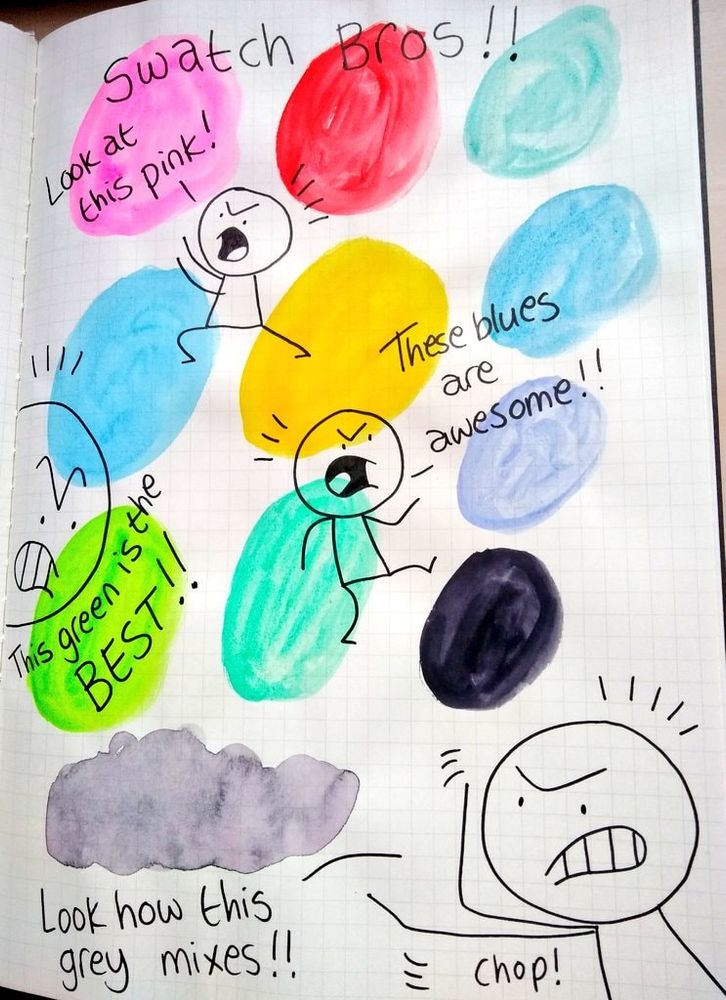 Swatch Bros!!
Look at
this pink!
These blues
are
awesome!!
This green is the
BEST!!
Look how this
grey mixes!!
chop!